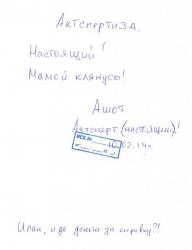 Актспертиза.
Настоящий!
Мамой клянусь!
Ашот
Актсперт (настоящий)!
10.02.14г.
ИСХ. №
Илан, и де деньги за справку?!